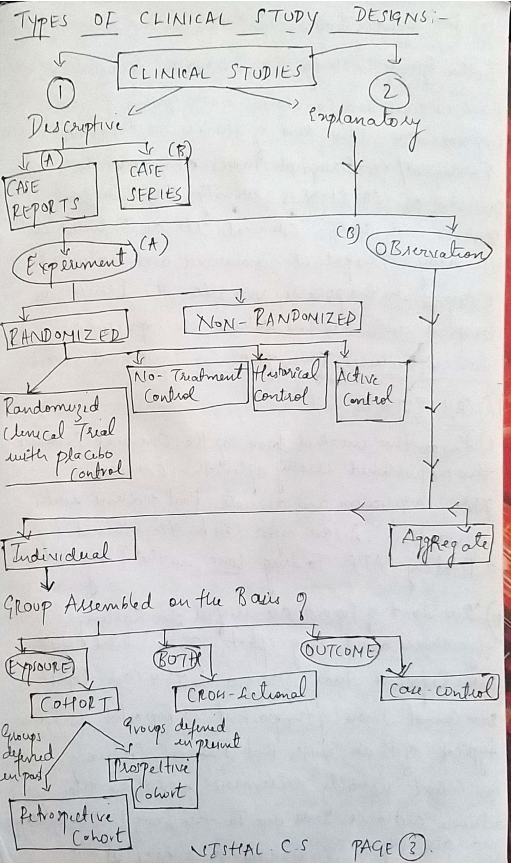 TYPES OF CLINICAL STUDY DESIGNS:-
CLINICAL STUDIES
1
2
Descriptive
Explanatory
(A)
(B)
CASE
REPORTS
CASE
SERIES
(A)
(B)
Experiment
OBservation
RANDOMIZED
NON-RANDOMIZED
Randomized
Clinical Trial
with placebo
Control
No-Treatment
Control
Historical
Control
Active
Control
Individual
Aggregate
Group Assembled on the Basis of
EXPOSURE
BOTH
OUTCOME
COHORT
Cross-sectional
Case-control
Groups
defined
in past
Groups defined
in present
Prospective
Cohort
Retrospective
Cohort
VISHAL.C.S PAGE 3.